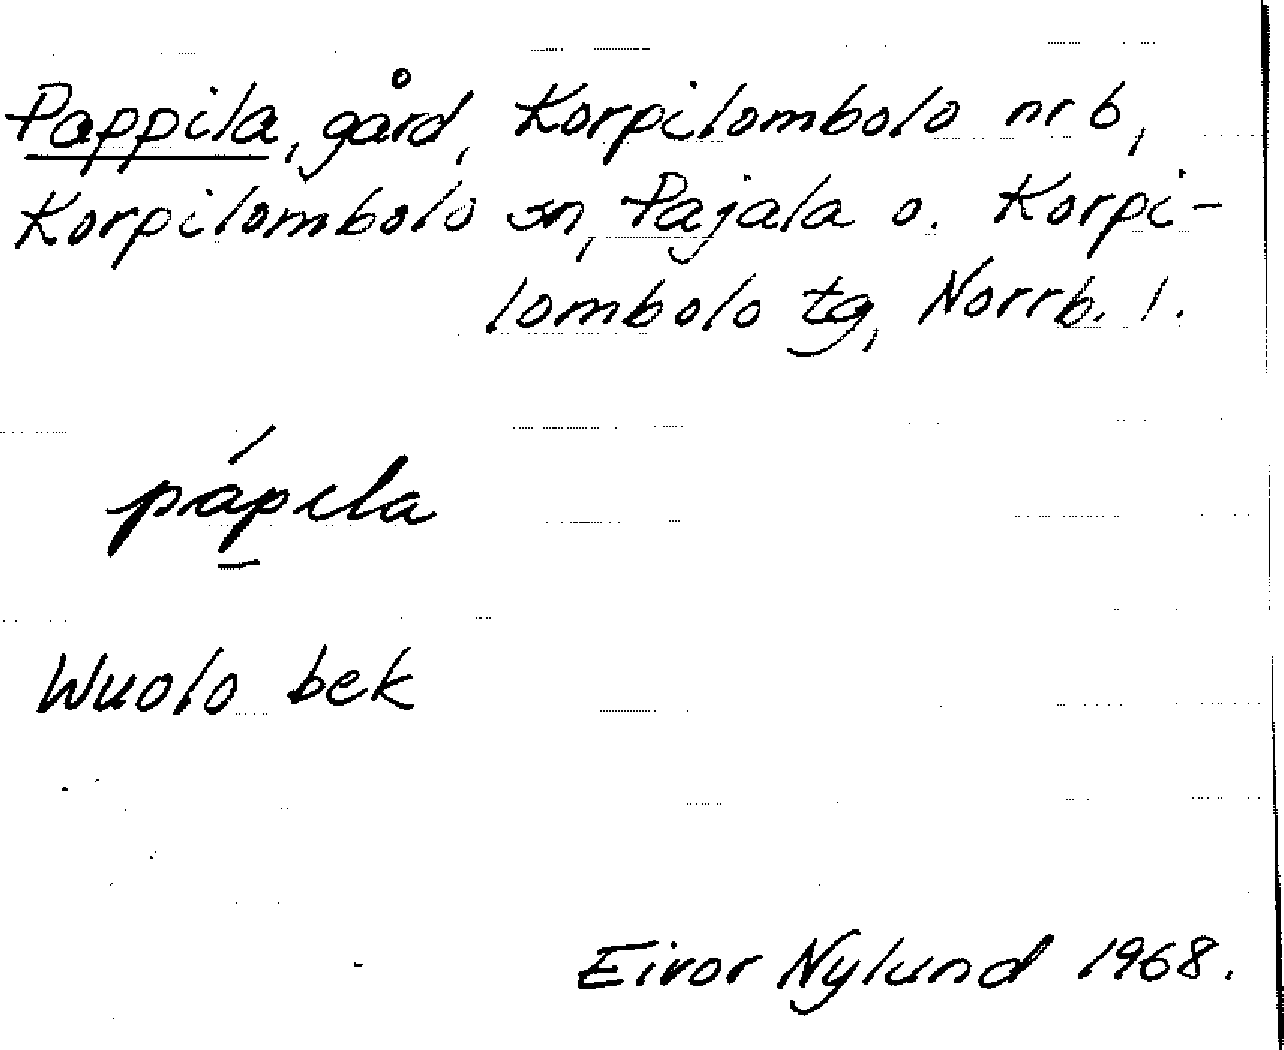 Pappila, gård, Korpilombolo nr 6,
Korpilombolo sn, Pajala o. Korpi-
lombolo tg, Norrb. l.
pápila
Wuolo bek
Eivor Nylund 1968.